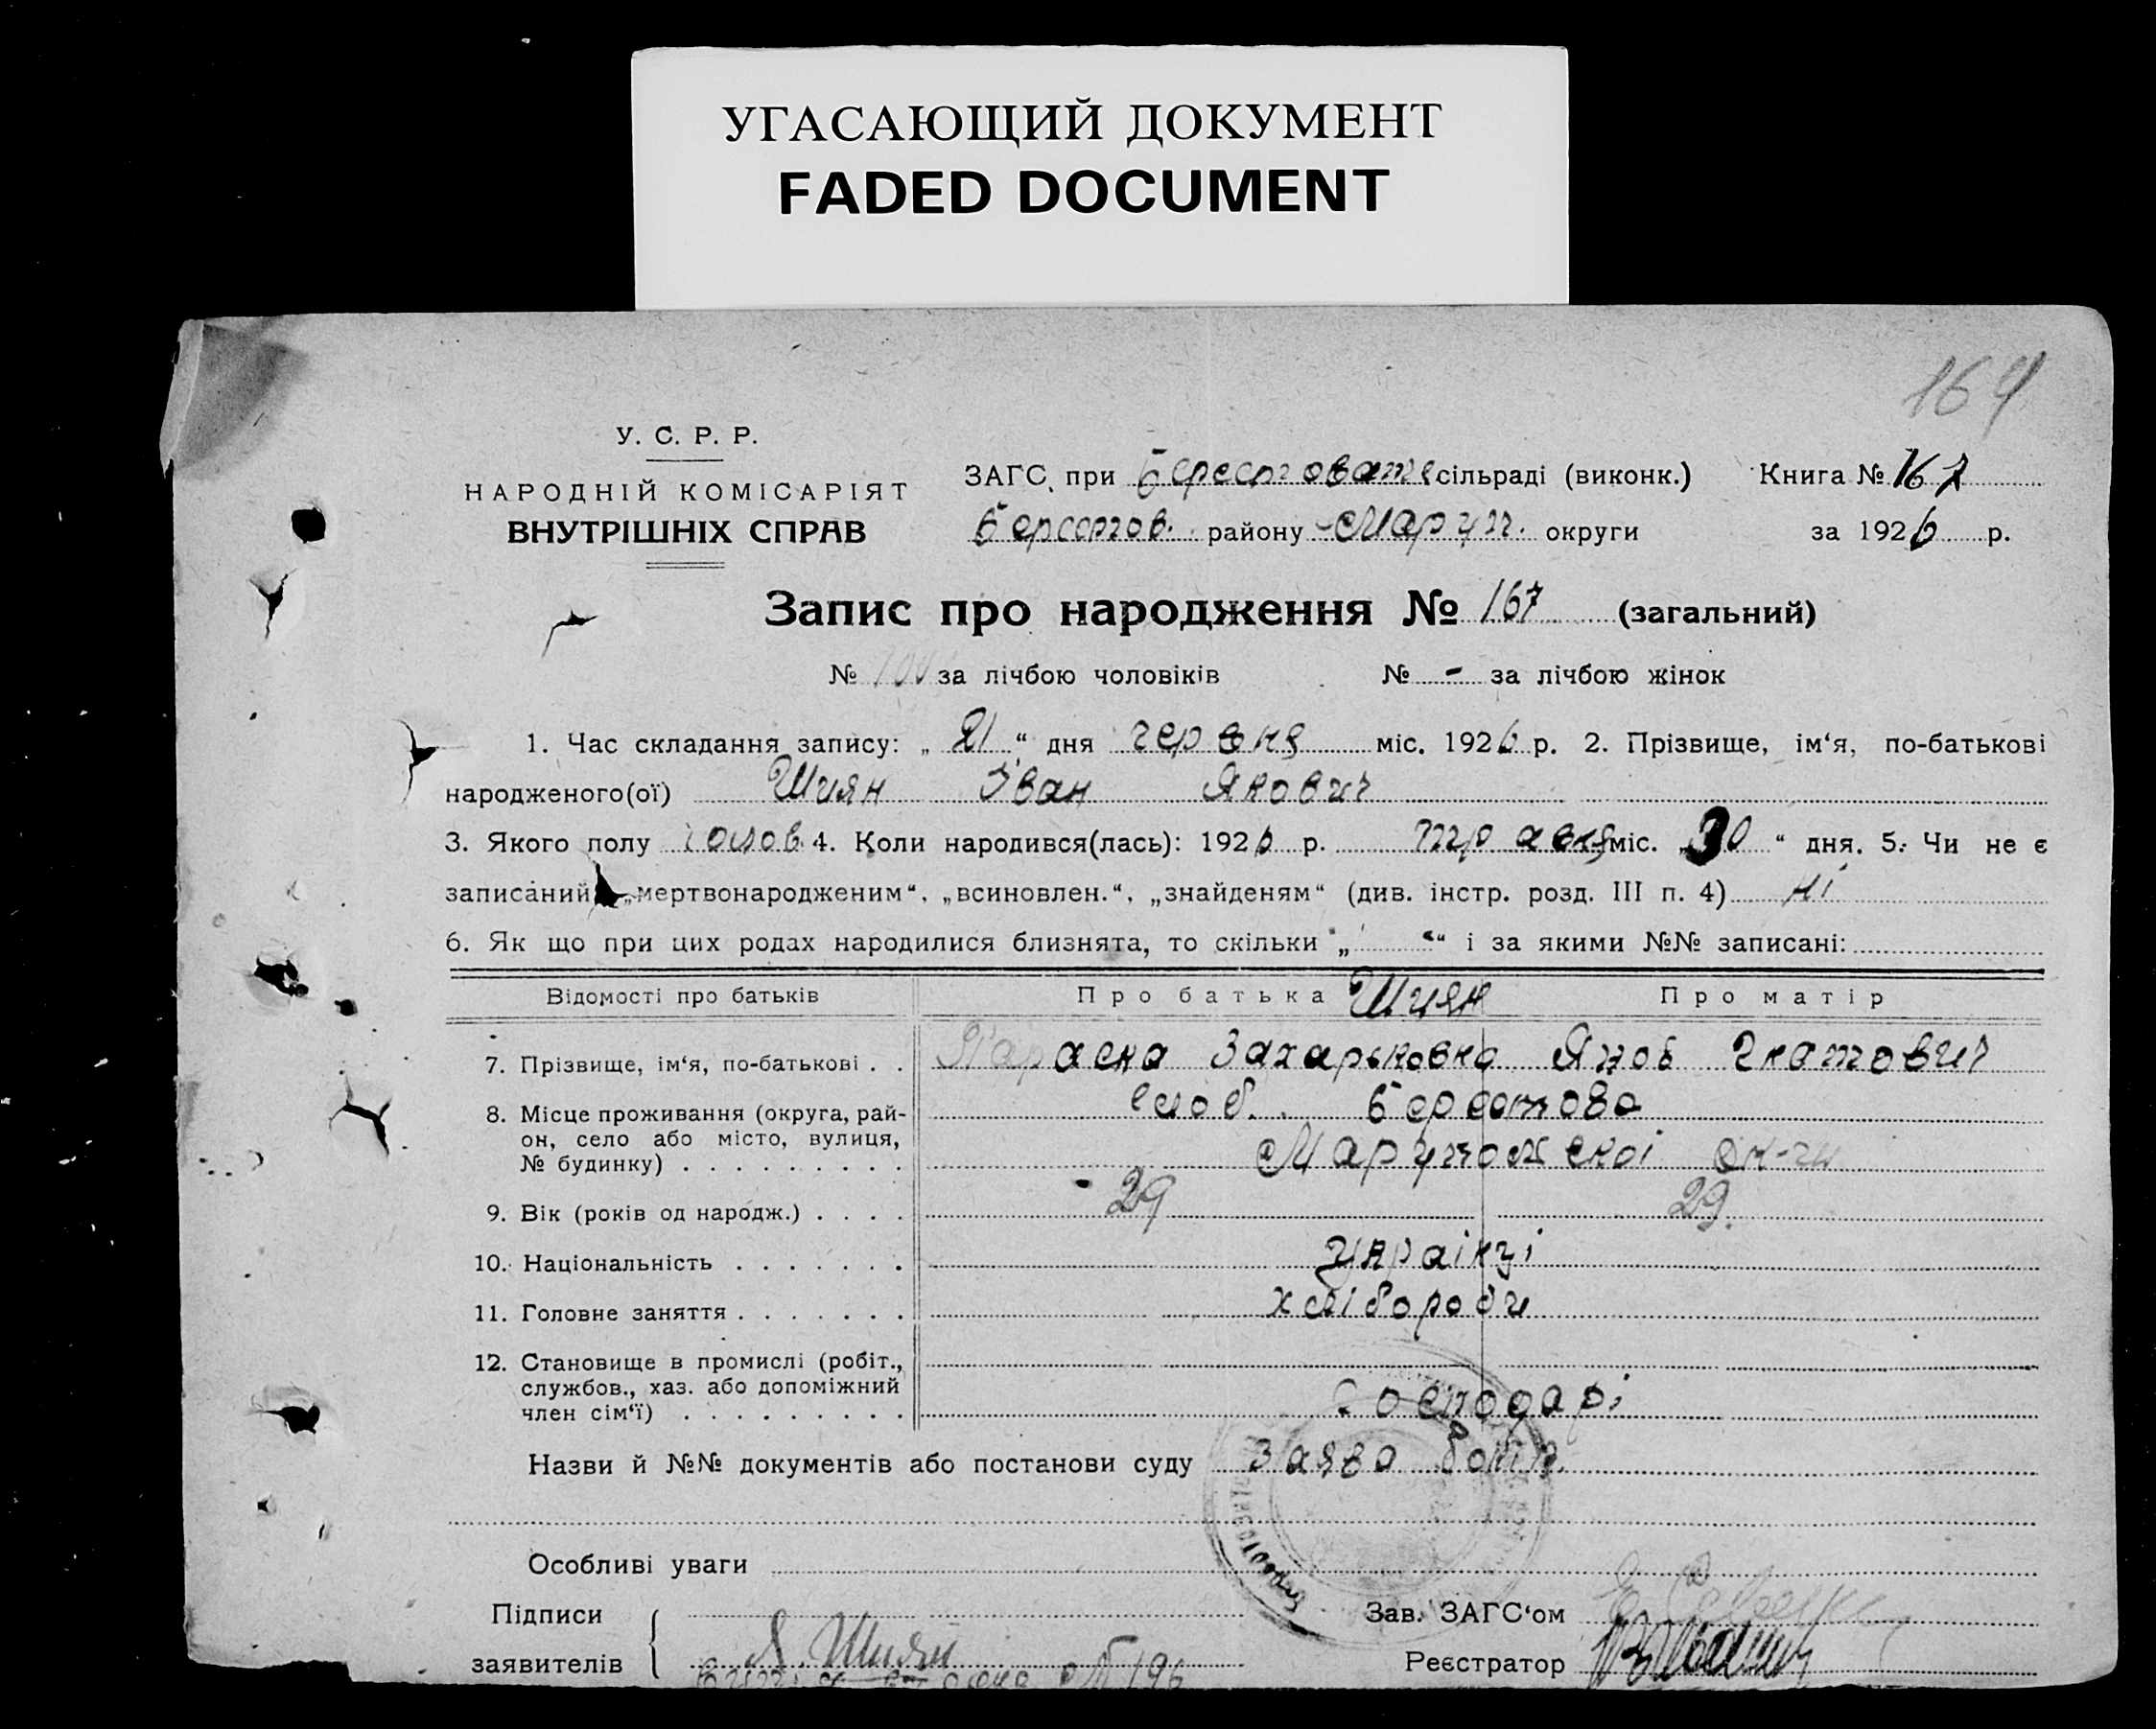 УГАСАЮЩИЙ ДОКУМЕНТ
FADED DOCUMENT
164
У. С. Р. Р.
НАРОДНІЙ КОМІСАРІЯТ
ВНУТРІШНІХ СПРАВ
ЗАГС при Берестовате сільраді (виконк.) Книга № 167
Берестов. району Маріуп. округи за 1926 р.
Запис про народження № 167 (загальний)
№ за лічбою чоловіків № - за лічбою жінок
1. Час складання запису: „21“ дня червня міс. 1926 р. 2. Прізвище, ім‘я, по-батькові
народженого(ої) Шиян Іван Якович
3. Якого полу чолов. 4. Коли народився(лась): 1926 р. травня міс. „30“ дня. 5. Чи не є
записаний „мертвонародженим“, „всиновлен.“, „знайденям“ (див. інстр. розд. III п. 4) ні
6. Як що при цих родах народилися близнята, то скільки „ “ і за якими №№ записані:
Відомості про батьків Про батька Шиян Про матір
7. Прізвище, ім‘я, по-батькові . . Параска Захарьковна Яков Гнатович
8. Місце проживання (округа, рай-
он, село або місто, вулиця,
№ будинку) . . . . . . . . .
слоб. Берестова
Маріупольскоі ок-ги
9. Вік (років од народж.) . . . . 29 29.
10. Національність . . . . . . . українці
11. Головне заняття . . . . . . . хлібороби
12. Становище в промислі (робіт.,
службов., хаз. або допоміжний
член сім‘ї) . . . . . . . . .
Господарі
Назви й №№ документів або постанови суду Заява батьк.
Особливі уваги
Підписи
заявителів Я. Шиян
Зав. ЗАГС‘ом
Реєстратор
№ 196